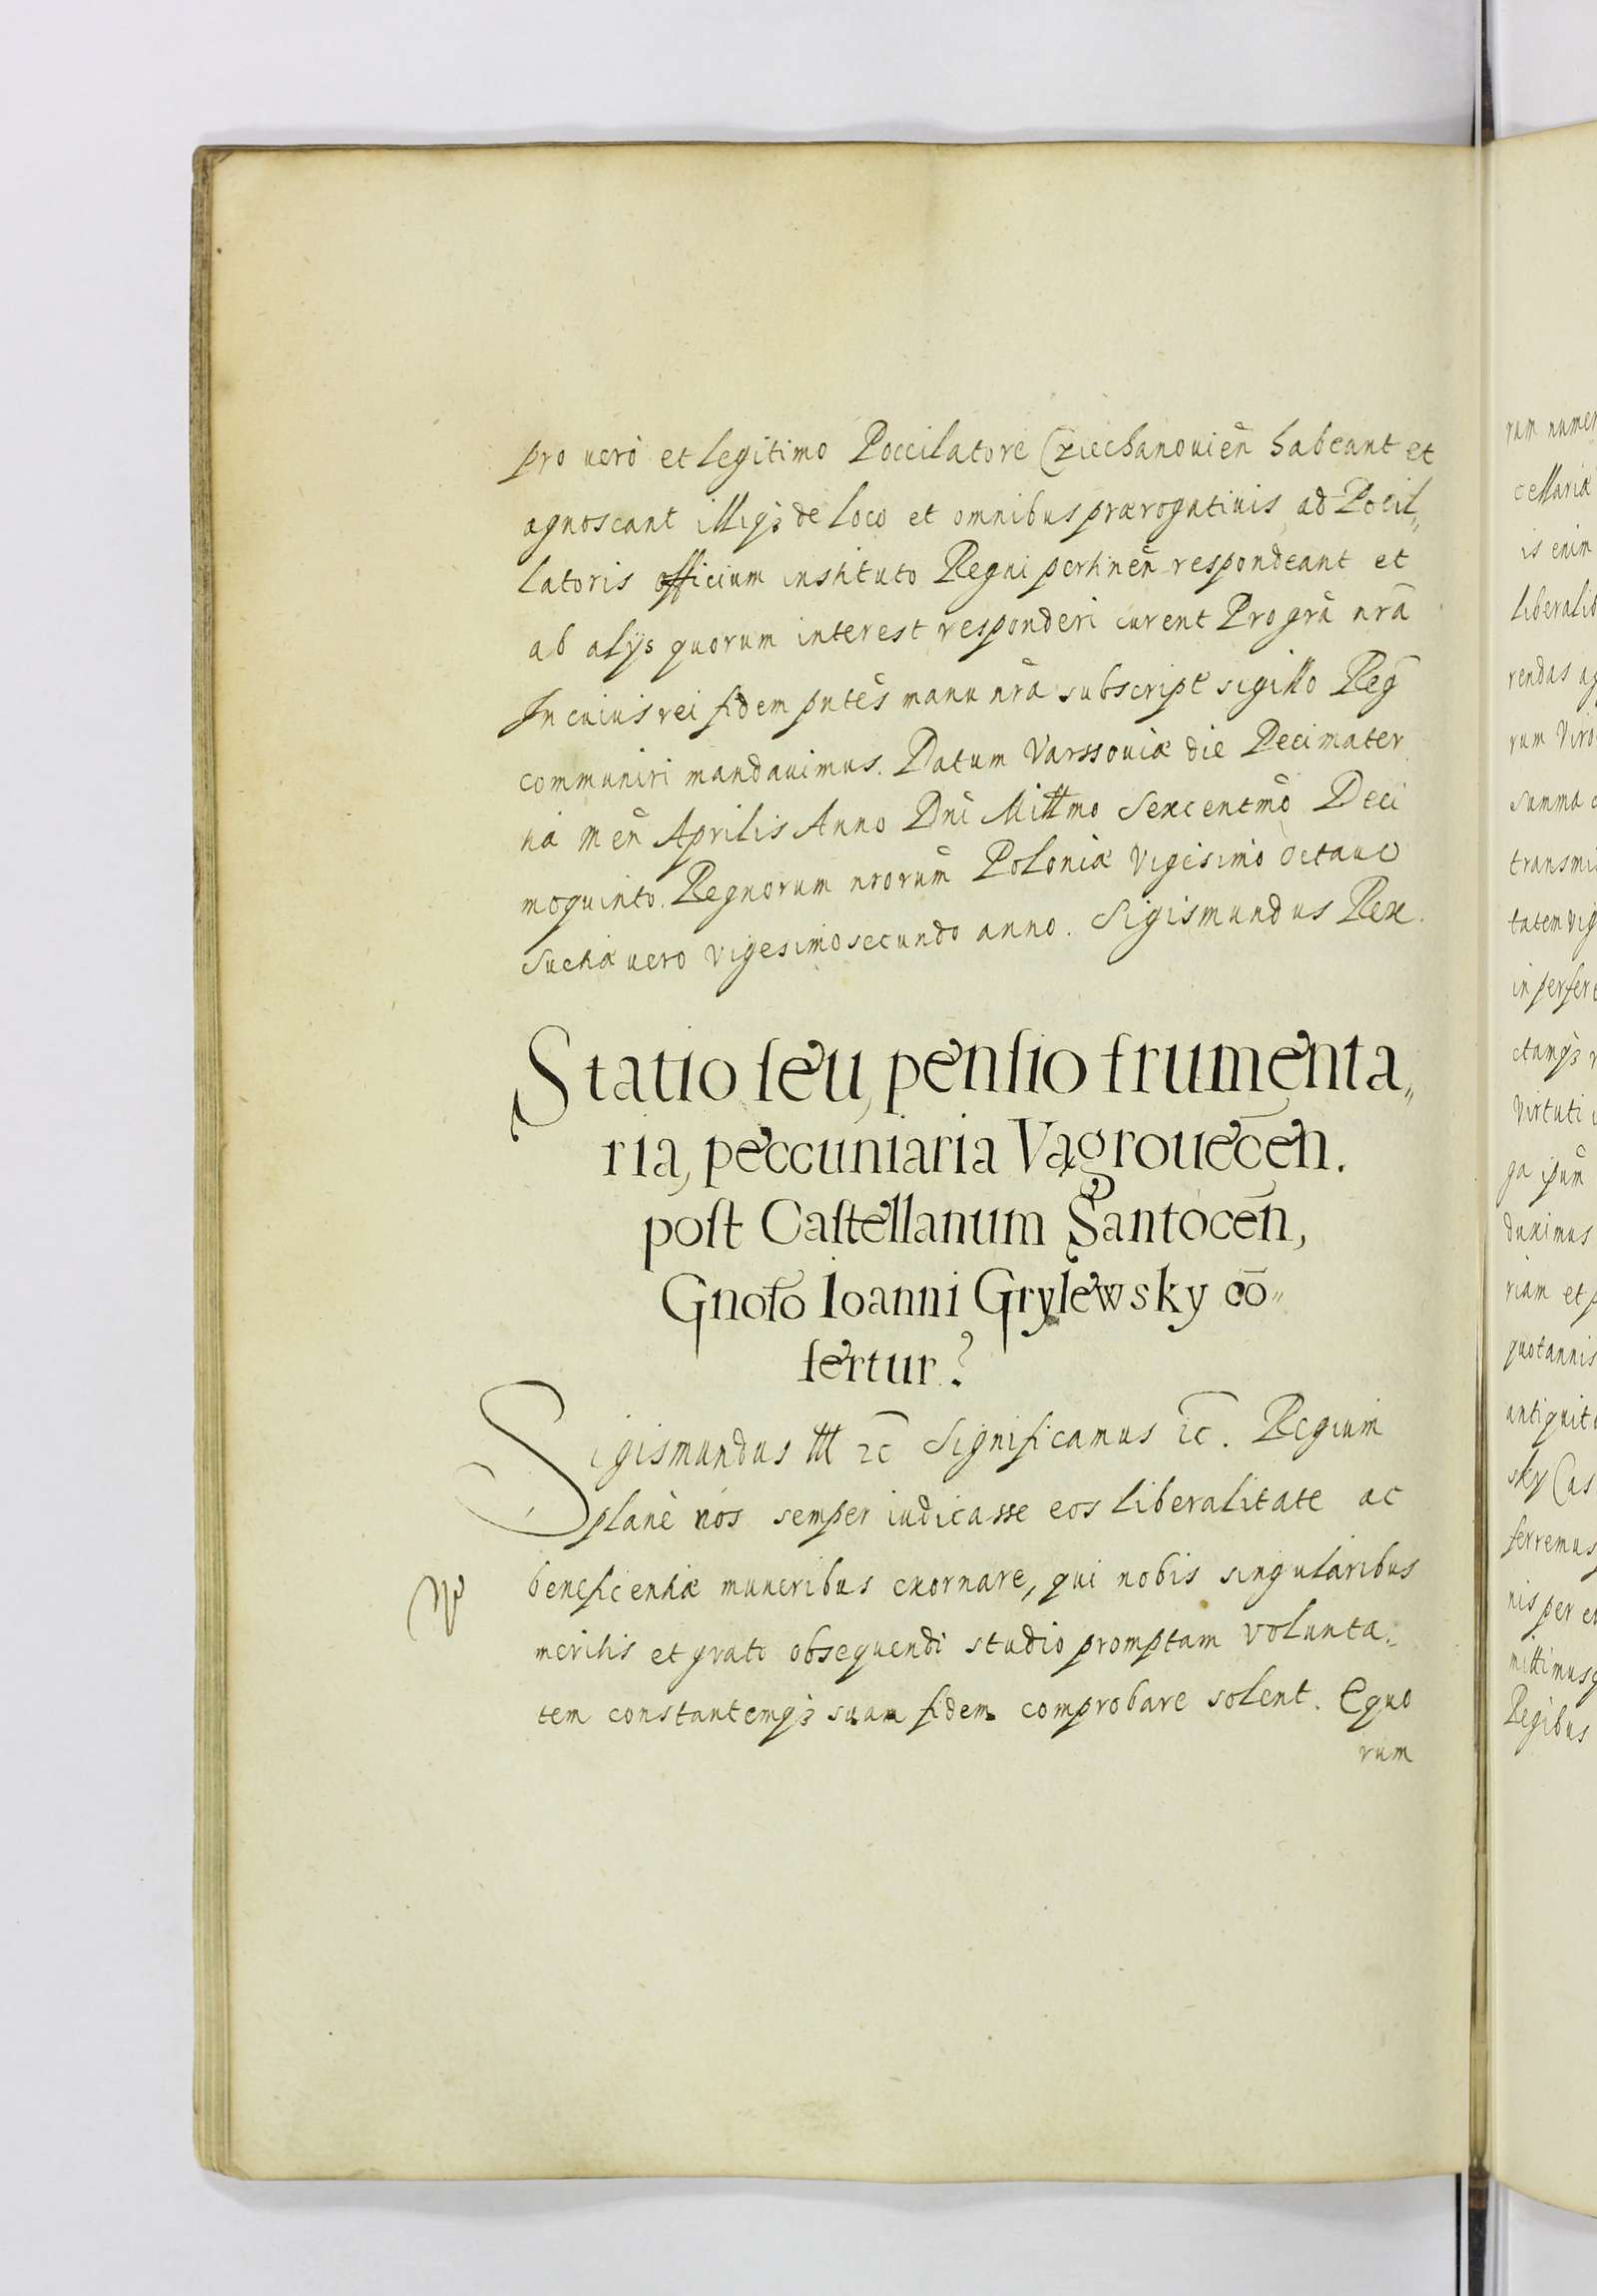 pro verò et legitimo Poccilatore Cziechanouien̄ habeant et
agnoscant illiqȝ de loco et omnibus prærogatiuis ad Pocil„
latoris officium instituto Regni pertinen̄ respondeant et
ab alijs quorum interest responderi curent Pro grā nrā
In cuius rei fidem pntēs manu nrā subscript̄ sigillo Reḡ
communiri mandauimus. Datum Varssouiæ die Decimater
na Men̄ Aprilis Anno Dnī Millmo Sexcentmō Deci
moquinto. Regnorum nrorūm Poloniæ Vigesimo octauo
Sueciæ vero vigesimosecundo anno. Sigismundus Rex.
Statio seu, pensio frumenta„
ria, peccuniaria Vągrouecen̄.
post Castellanum Santocen̄,
Gnoso Ioanni Grylewsky cō„
fertur.
Sigismundus III ꝛc̄ Significamus ꝛc̄. Regium
planè nos semper iudicasse eos liberalitate ac
beneficentiæ muneribus exornare, qui nobis singularibus
meritis et grato obsequendi studio promptam volunta„
tem constantemqȝ suam fidem comprobare solent. Equo
rum
rum numer
cellariæ
is enim
liberalit
rendas
rum Viro
summa
transmi
tatem vig
in perfer
ctamqȝ
Virtuti
ga ipūm
duximus
riam et p
quotannis
antiquit
sky Cas
ferremus
nis per e
mittimusq
Regibus